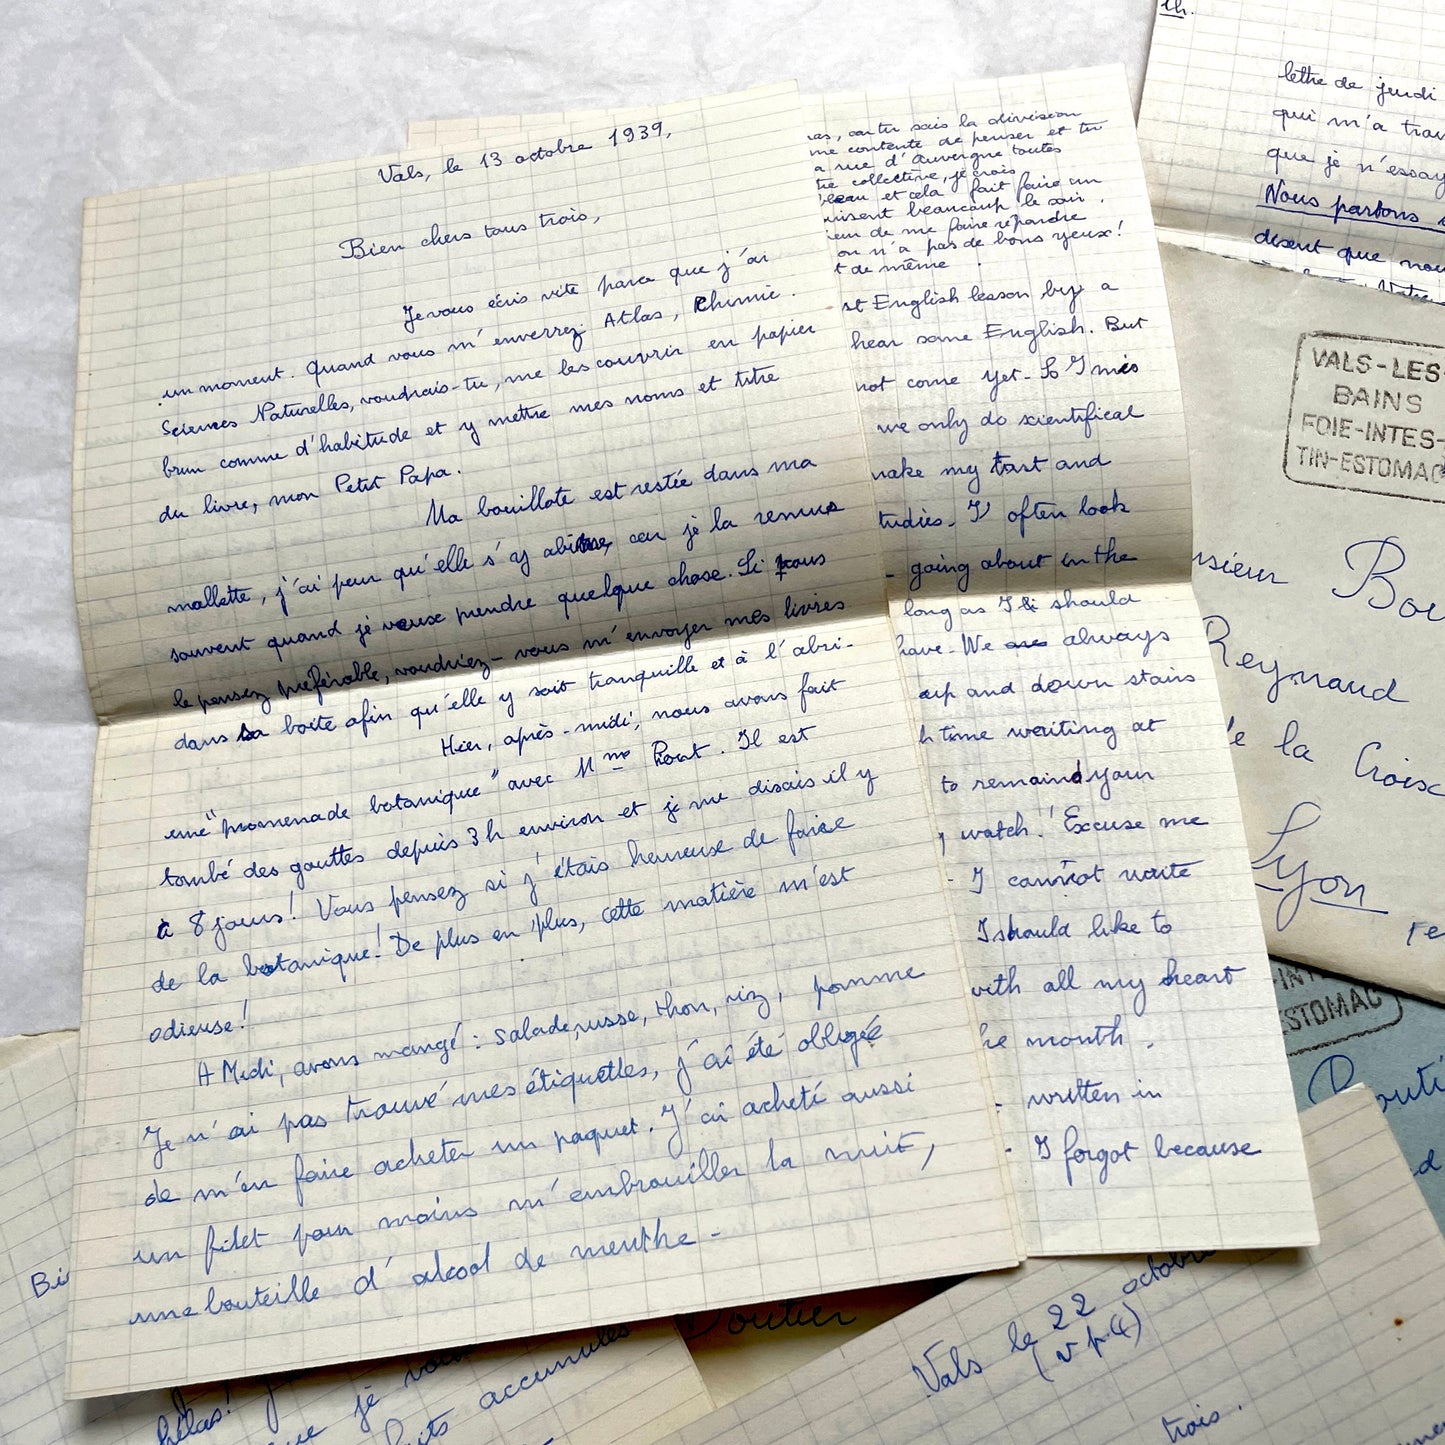 Vals, le 13 octobre 1939,
Bien chers tous trois,
Je vous écris vite parce que j'ai
un moment. Quand vous m'enverrez Atlas, Chimie.
Sciences Naturelles, voudrais-tu, me les couvrir en papier
brun comme d'habitude et y mettre mes noms et titre
du livre, mon Petit Papa.
Ma bouillote est restée dans ma
mallette, j'ai peur qu'elle s'y abîme, car je la remue
souvent quand je veux prendre quelque chose. Si vous
le pensez préférable, voudriez-vous m'envoyer mes livres
dans sa boite afin qu'elle y soit tranquille et à l'abri-
Hier, après-midi, nous avons fait
une "promenade botanique" avec Mme. Il est
tombé des gouttes depuis 3h environ et je me disais il y
a 8 jours! Vous pensez si j'étais heureuse de faire
de la botanique! De plus en plus, cette matière m'est
odieuse!
A Midi, avons mangé : salade, russe, thon, riz, pomme
Je n'ai pas trouvé mes étiquettes, j'ai été obligée
de m'en faire acheter un paquet. J'ai acheté aussi
un filet pour moins m'embrouiller la nuit,
une bouteille d'alcool de menthe -
as, car tu sais la division
me contente de penser et tu
a rue d'Auvergne toutes
tre collective, je crois
eau et cela fait faire un
uisent beaucoup le soir.
ieur de me faire répondre
on n'a pas de bons yeux!
t de même.
st English lesson by a
hear some English. But
not come yet - So I mis
we only do scientifical
make my tart and
tudies - I often look
- going about in the
long as I should
have - We are always
up and down stairs
h time writing at
to remaind your
, watch!! Excuse me
- I cannot write
I should like to
with all my heart
he month.
- written in
- I forgot because
th.
lettre de jeudi
qui m'a trou
que je n'essay
Nous partons
disent que nou
VALS-LES-
BAINS
FOIE-INTES-
TIN-ESTOMAC
nsieur Bou
Reynaud
de la Croix
Lyon
-INT
ESTOMAC
Bouti
d
Bi
Boutier
hélas!
que je vou
accumulés
Vals le 22 octobre
(v p. 4)
trois.